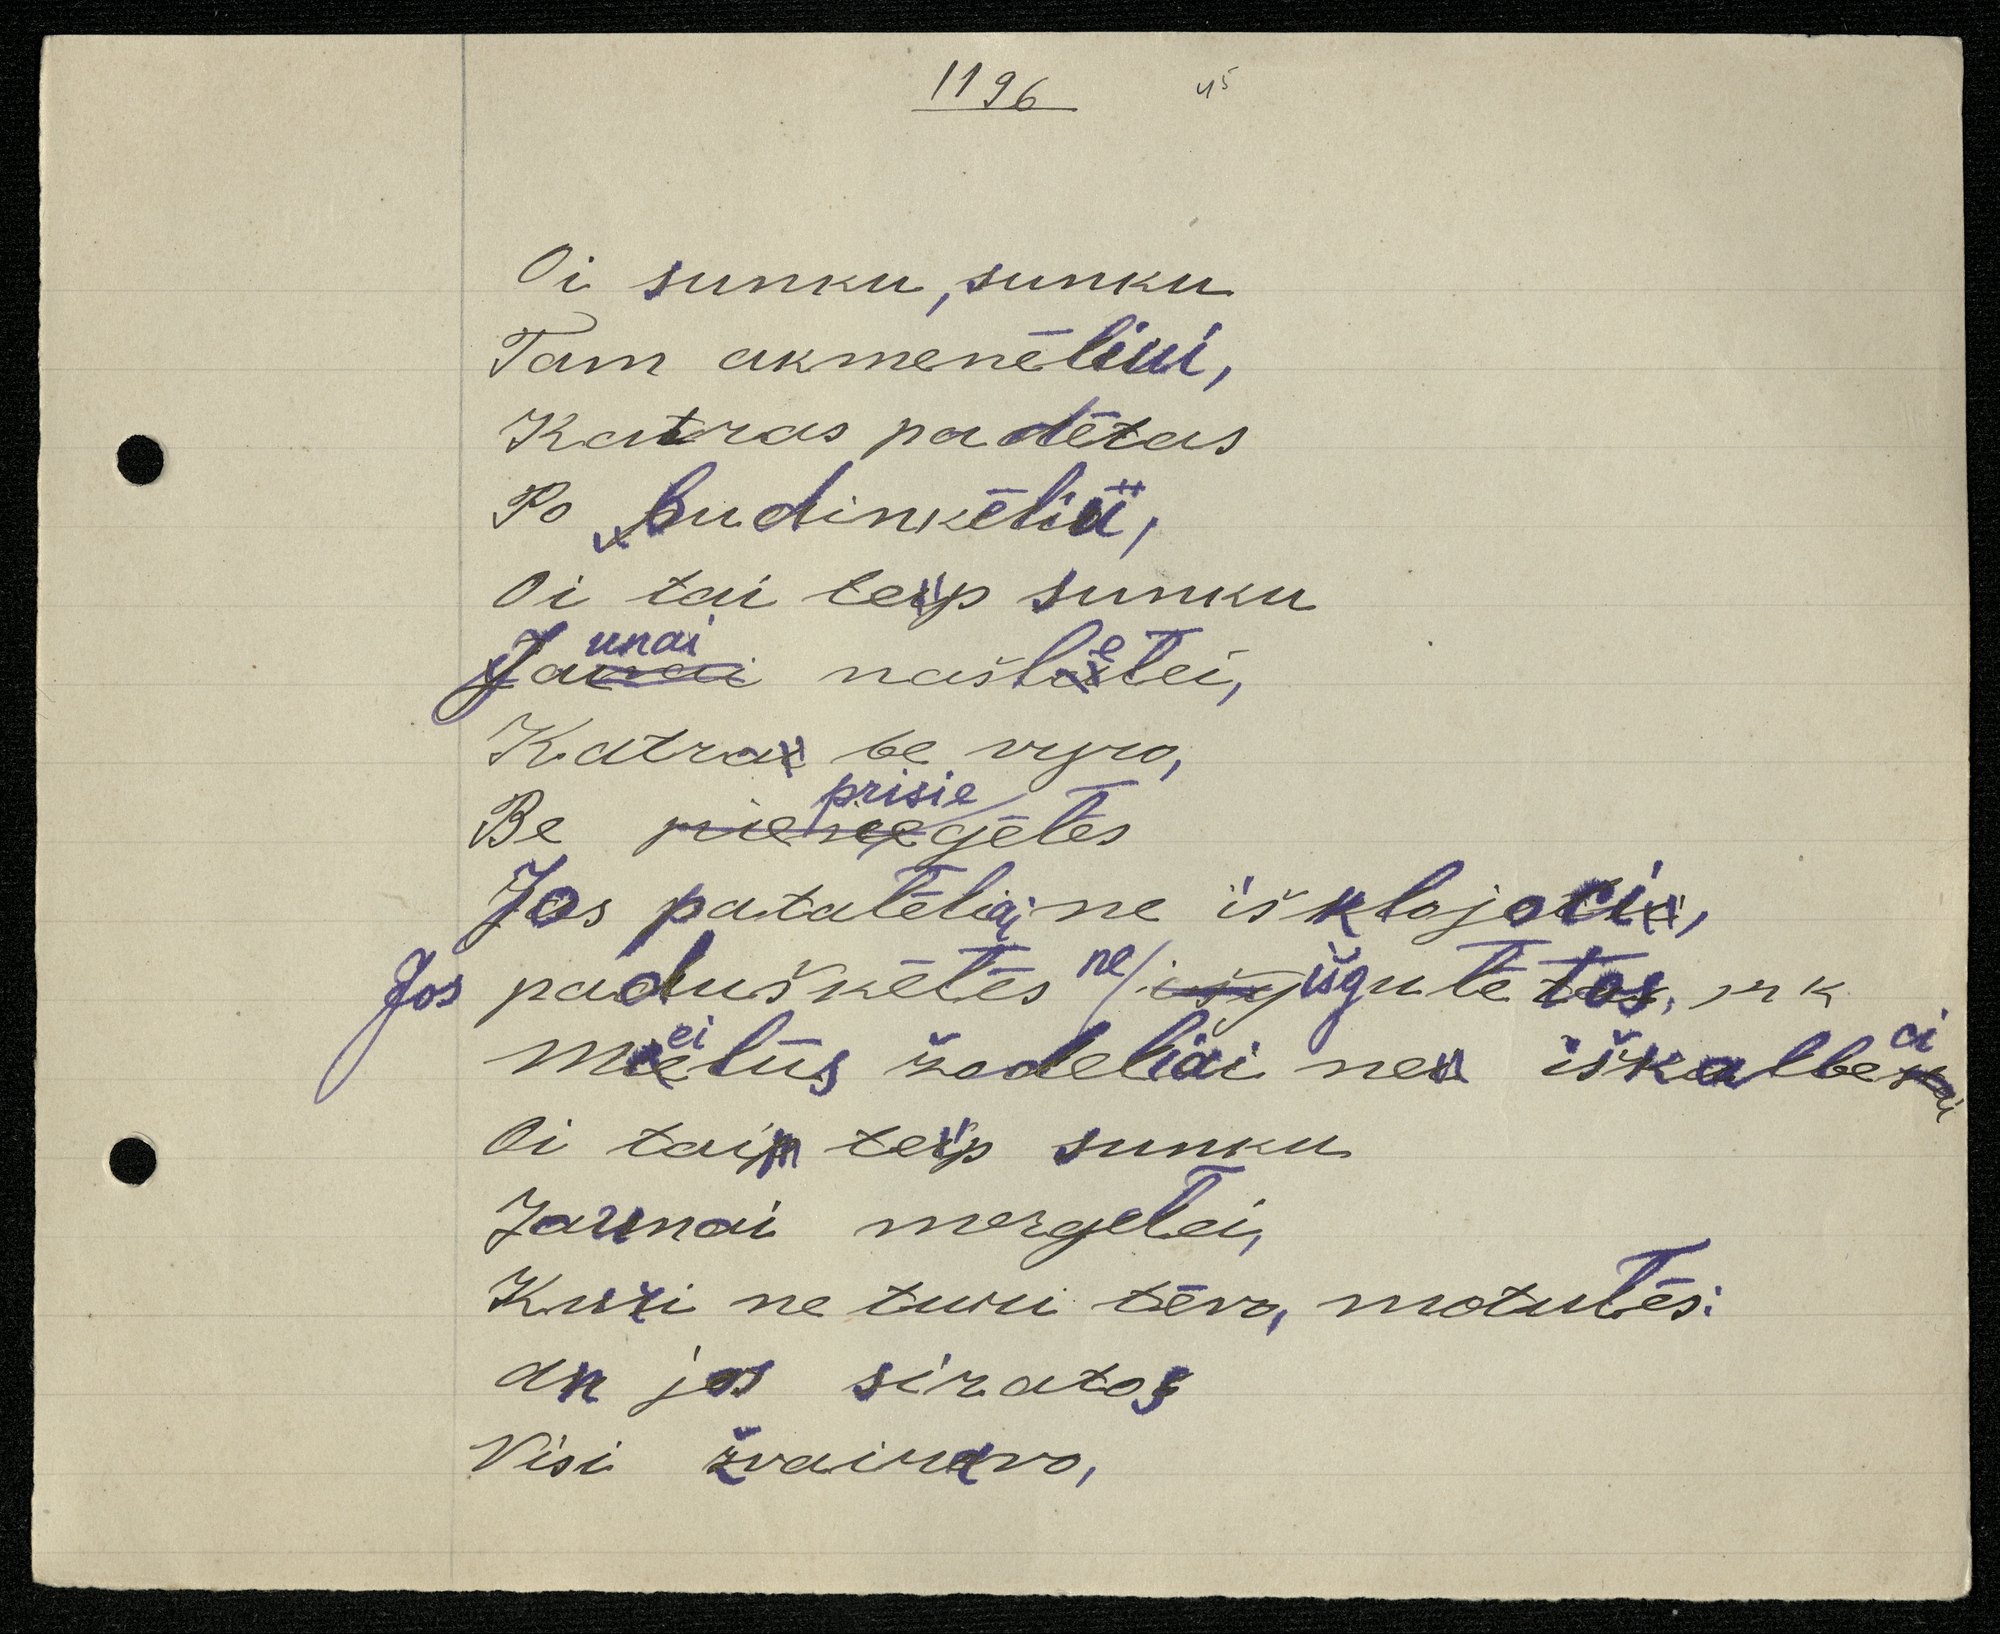 1196 45
Oi sunku, sunku
Tam akmenēliui,
Katras padētas
Po budinkēliu,
Oi tai teip sunku
Jaunai našletei,
Katra be vyro,
Be prisiegētēs
Jos patatēliai ne iš klojoti,
Jos paduškētēs ne išgutētos,
meilūs žodeliai ne iškalbeci
Oi taip teip sunku
Jaunai mergelei,
Kuri ne turi tēvo, motutēs:
an jos siratos
Visi žvairavo,